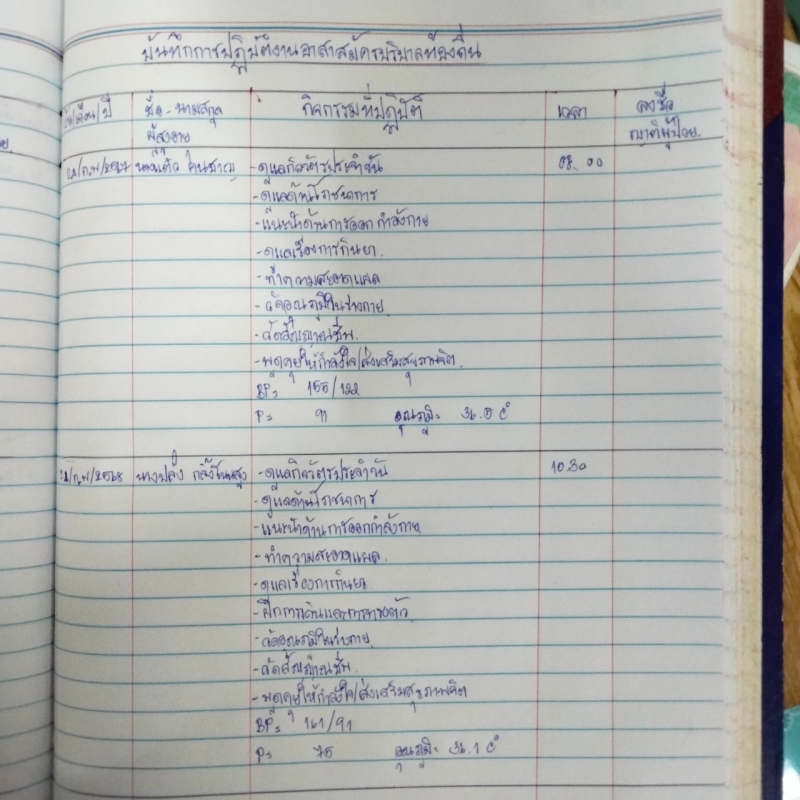 บันทึกการปฏิบัติงานอาสาสมัครบริบาลท้องถิ่น
วัน/เดือน/ปี ชื่อ - นามสกุล กิจกรรมที่ปฏิบัติ เวลา ลงชื่อ
ผู้สูงอายุ ญาติผู้ป่วย.
-ดูแลกิจวัตรประจำวัน 08.00
-ดูแลด้านโภชนาการ
-แนะนำด้านการออกกำลังกาย
-ดูแลเรื่องการกินยา.
-ทำความสะอาดแผล
-วัดอุณภูมิในร่างกาย.
-วัดสัญญาณชีพ.
-พูดคุยให้กำลังใจ/ส่งเสริมสุขภาพจิต.
BP= 155/122
P= 91 อุณภูมิ= 36.5 C°
นางปลั่ง -ดูแลกิจวัตรประจำวัน 10.30
-ดูแลด้านโภชนาการ
-แนะนำด้านการออกกำลังกาย
-ทำความสะอาดแผล.
-ดูแลเรื่องการกินยา
-ฝึกการเดินและการทรงตัว.
-วัดอุณภูมิในร่างกาย.
-วัดสัญญาณชีพ.
-พูดคุยให้กำลังใจ/ส่งเสริมสุขภาพจิต
BP= 161/91
P= 75 อุณภูมิ= 36.1 C°